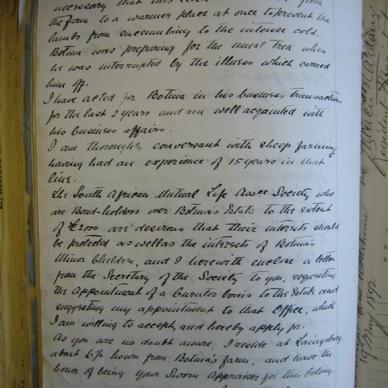 necessary that this
the farm to a warmer place at once to prevent the
lambs from succumbing to the intense cold.
Botma was preparing for the trek when
he was interrupted by the illness which carried
him off.
I have acted for Botma in his business transactions
for the last 2 years and am well acquainted with
his business affairs.
I am thoroughly conversant with sheep farming
having had an experience of 15 years in that
line.
The South African Mutual Life Assce Society who
are Bond-holders over Botma's Estate to the extent
of £2000 are desirous that their interests should
be protected as well as the interests of Botma's
Minor Children, and I herewith enclose a letter
from the Secretary of the Society to you, requesting
the Appointment of a Curator bonis to the Estate and
suggesting my appointment to that Office, which
I am willing to accept, and hereby apply for.
As you are no doubt aware, I reside at Laingsburg
about 6½ hours from Botma's farm, and have the
honor of being your Sworn Appraiser for this Colony.
May 1892